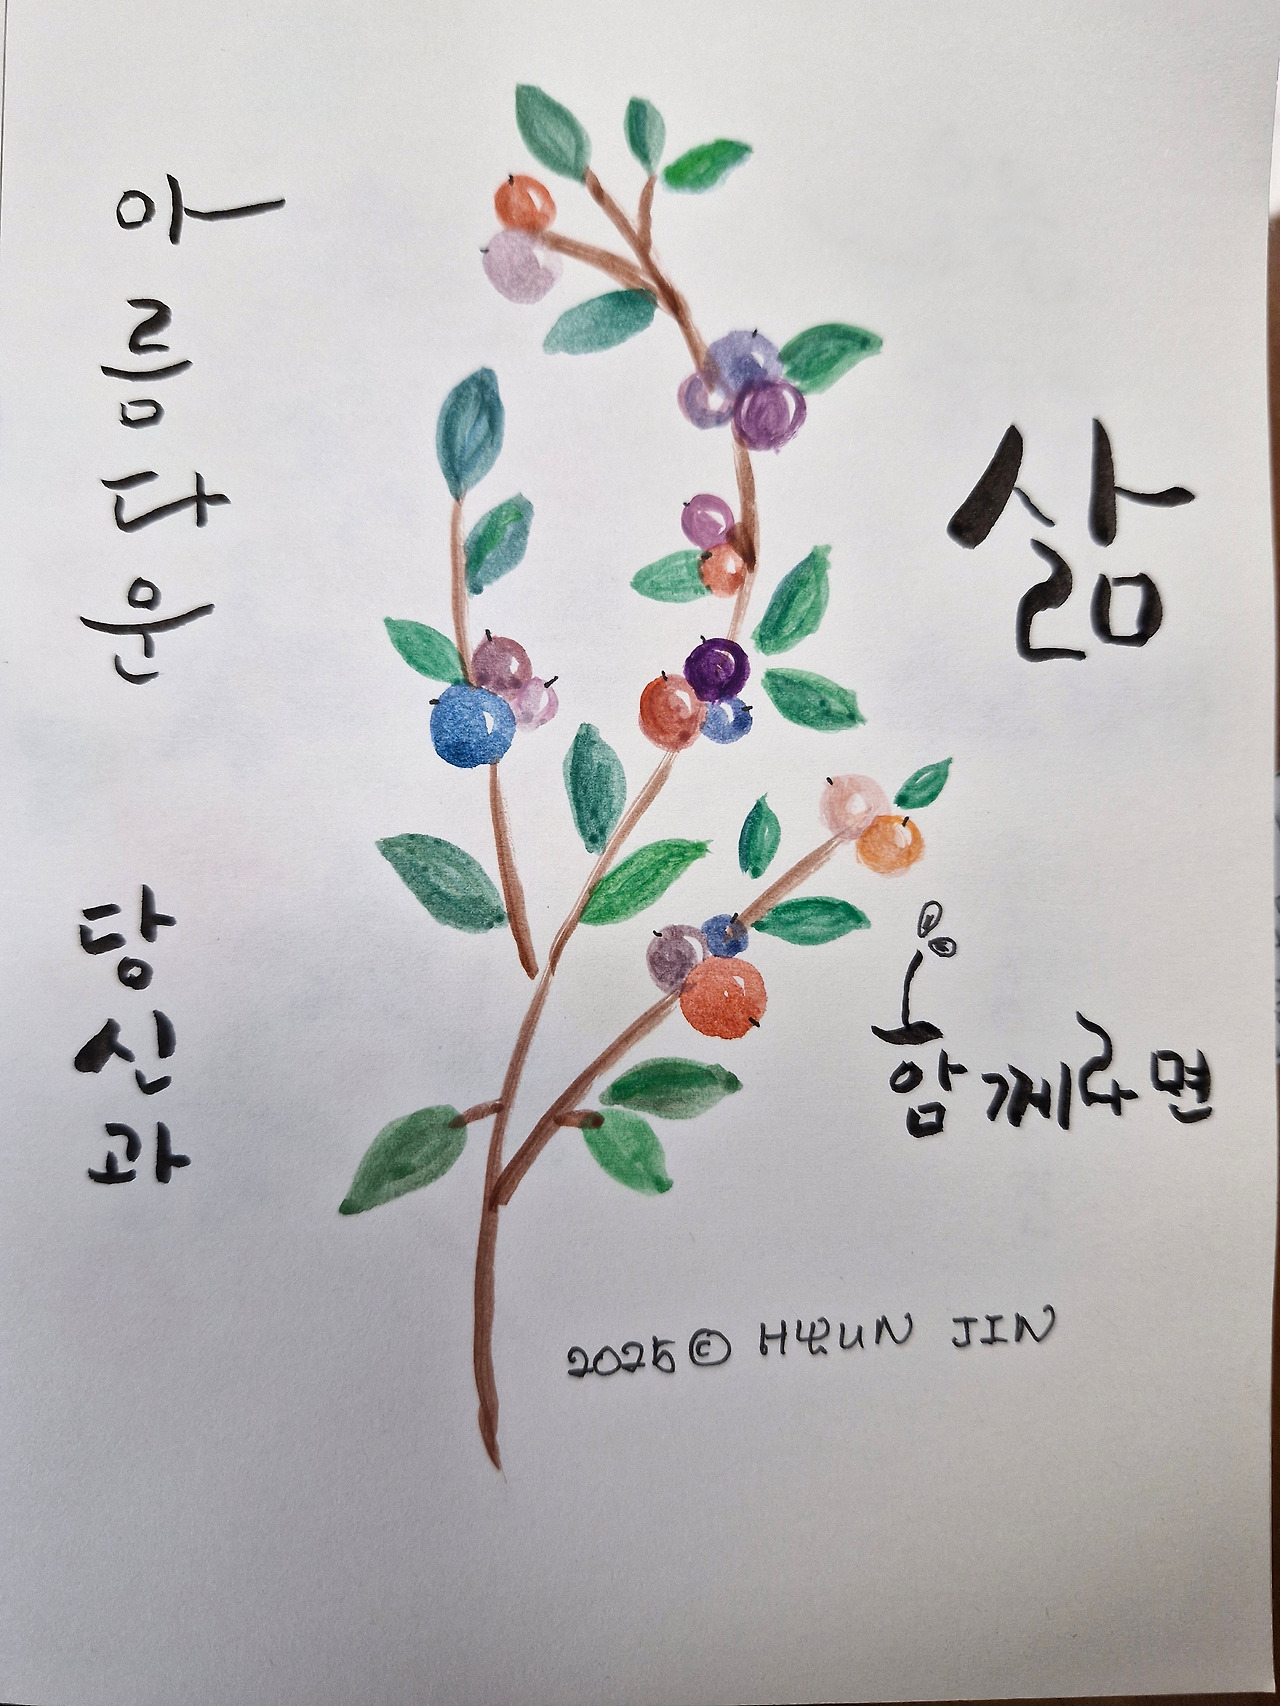 아름다운
삶
당신과
함께라면
2025 © HYUN JIN